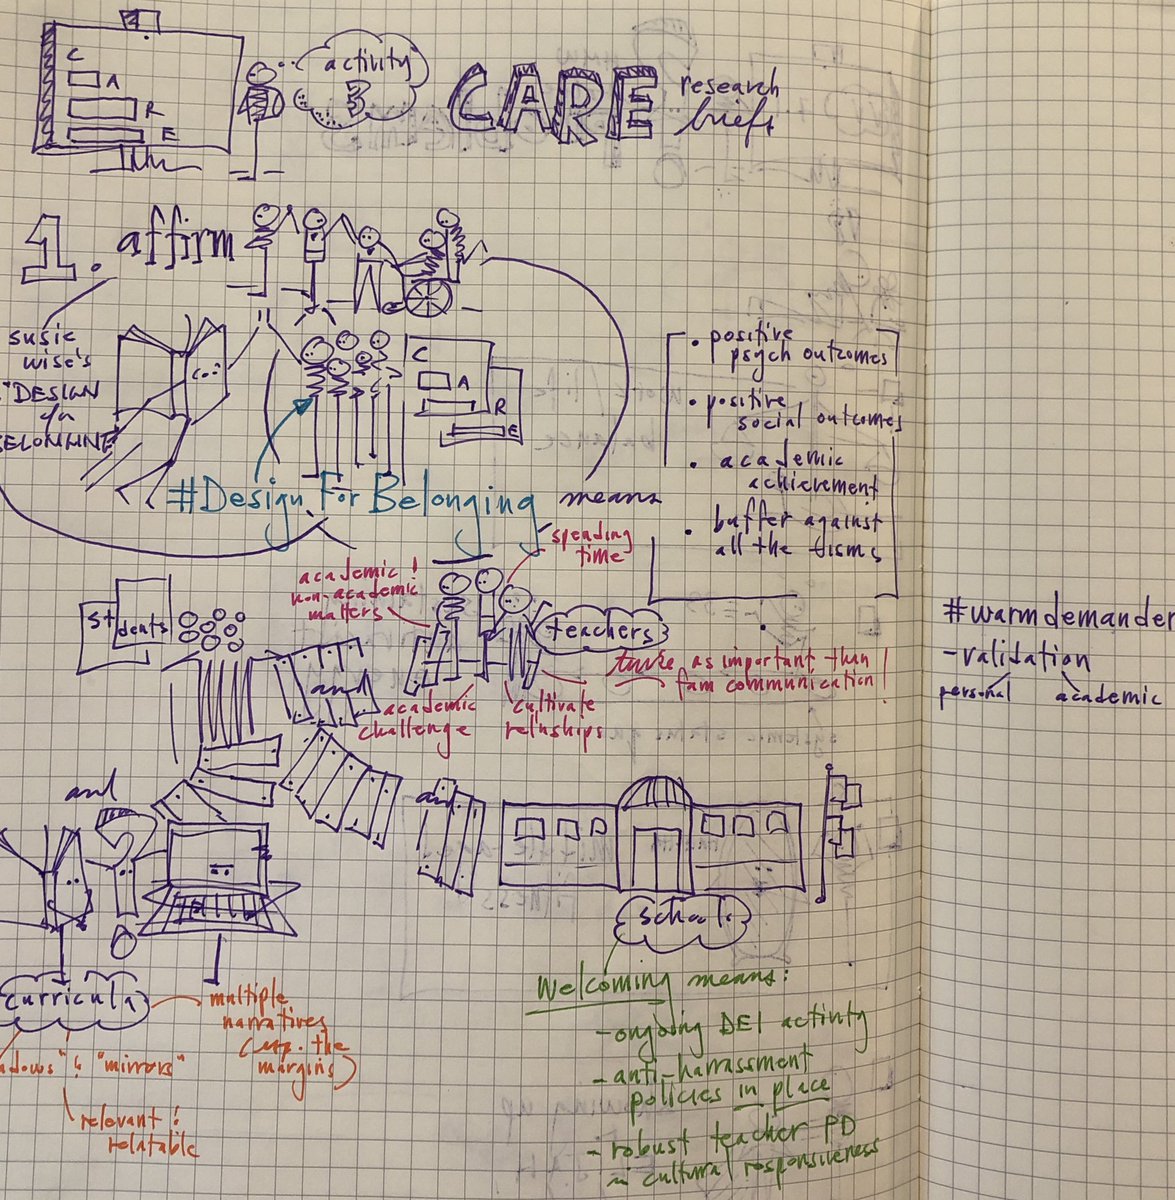 C
A
R
E
activity
3
CARE
research
briefs
1. affirm
susie
wise's
"DESIGN
C
A
R
E
#Design For Belonging means
• positive
psych outcomes
• positive
social outcomes
• academic
achievement
• buffer against
all the isms
spending
time
academic &
non-academic
matters
students
teachers
and
twice as important than
fam communication!
academic
challenge
cultivate
relnships
#warmdemander
- validation
personal
academic
and
schools
curricula
multiple
narratives
(esp. the
margins)
& "mirrors"
relevant &
relatable
Welcoming means:
- ongoing DEI activity
- anti-harrassment
policies in place
- robust teacher PD
in cultural responsiveness